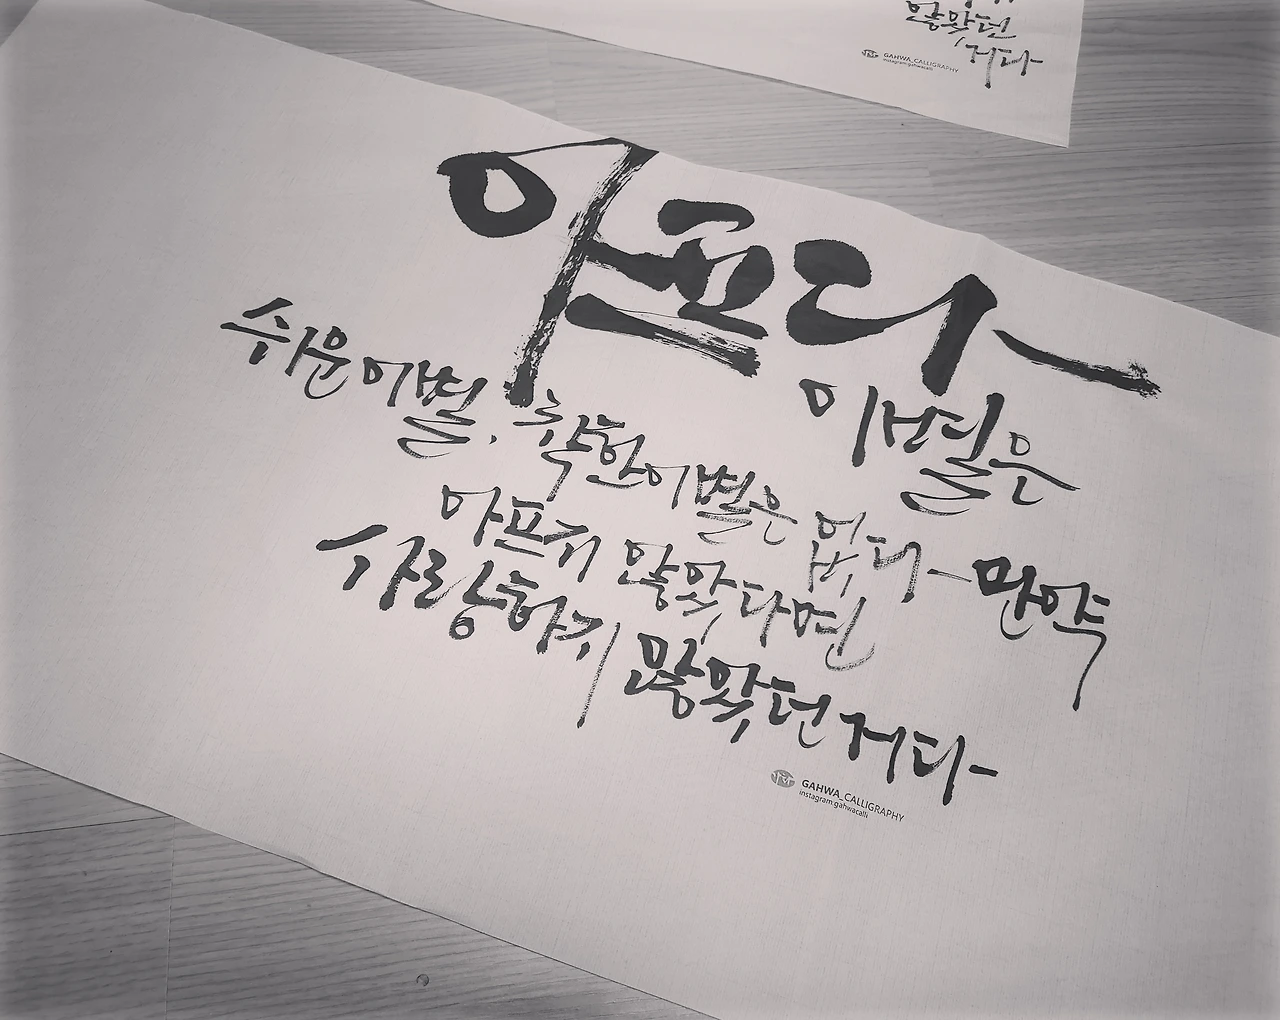 않았던
거다
GAHWA_CALLIGRAPHY
instagram.gahwacalli
아프다
이별은
쉬운 이별, 착한 이별은 없다 만약
아프지 않았다면
사랑하지 않았던 거다
GAHWA_CALLIGRAPHY
instagram.gahwacalli